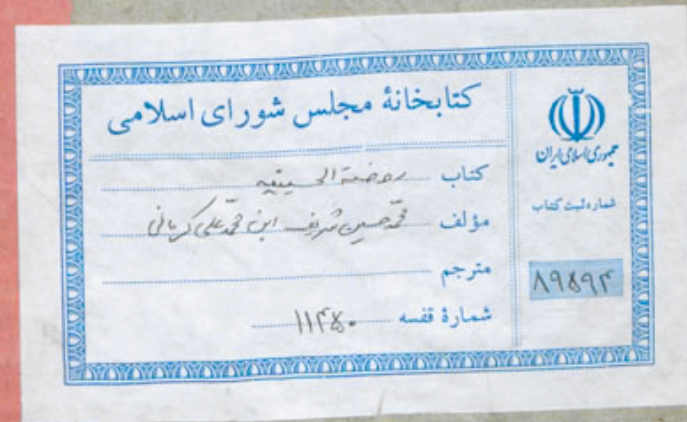 کتابخانهٔ مجلس شورای اسلامی
کتاب روضة الحسینیه
مؤلف محمّد حسین شریف ابن محمّد علی کرمانی
مترجم
شمارهٔ قفسه ۱۱۴۵۰
جمهوری اسلامی ایران
شماره ثبت کتاب
۸۹۵۹۴